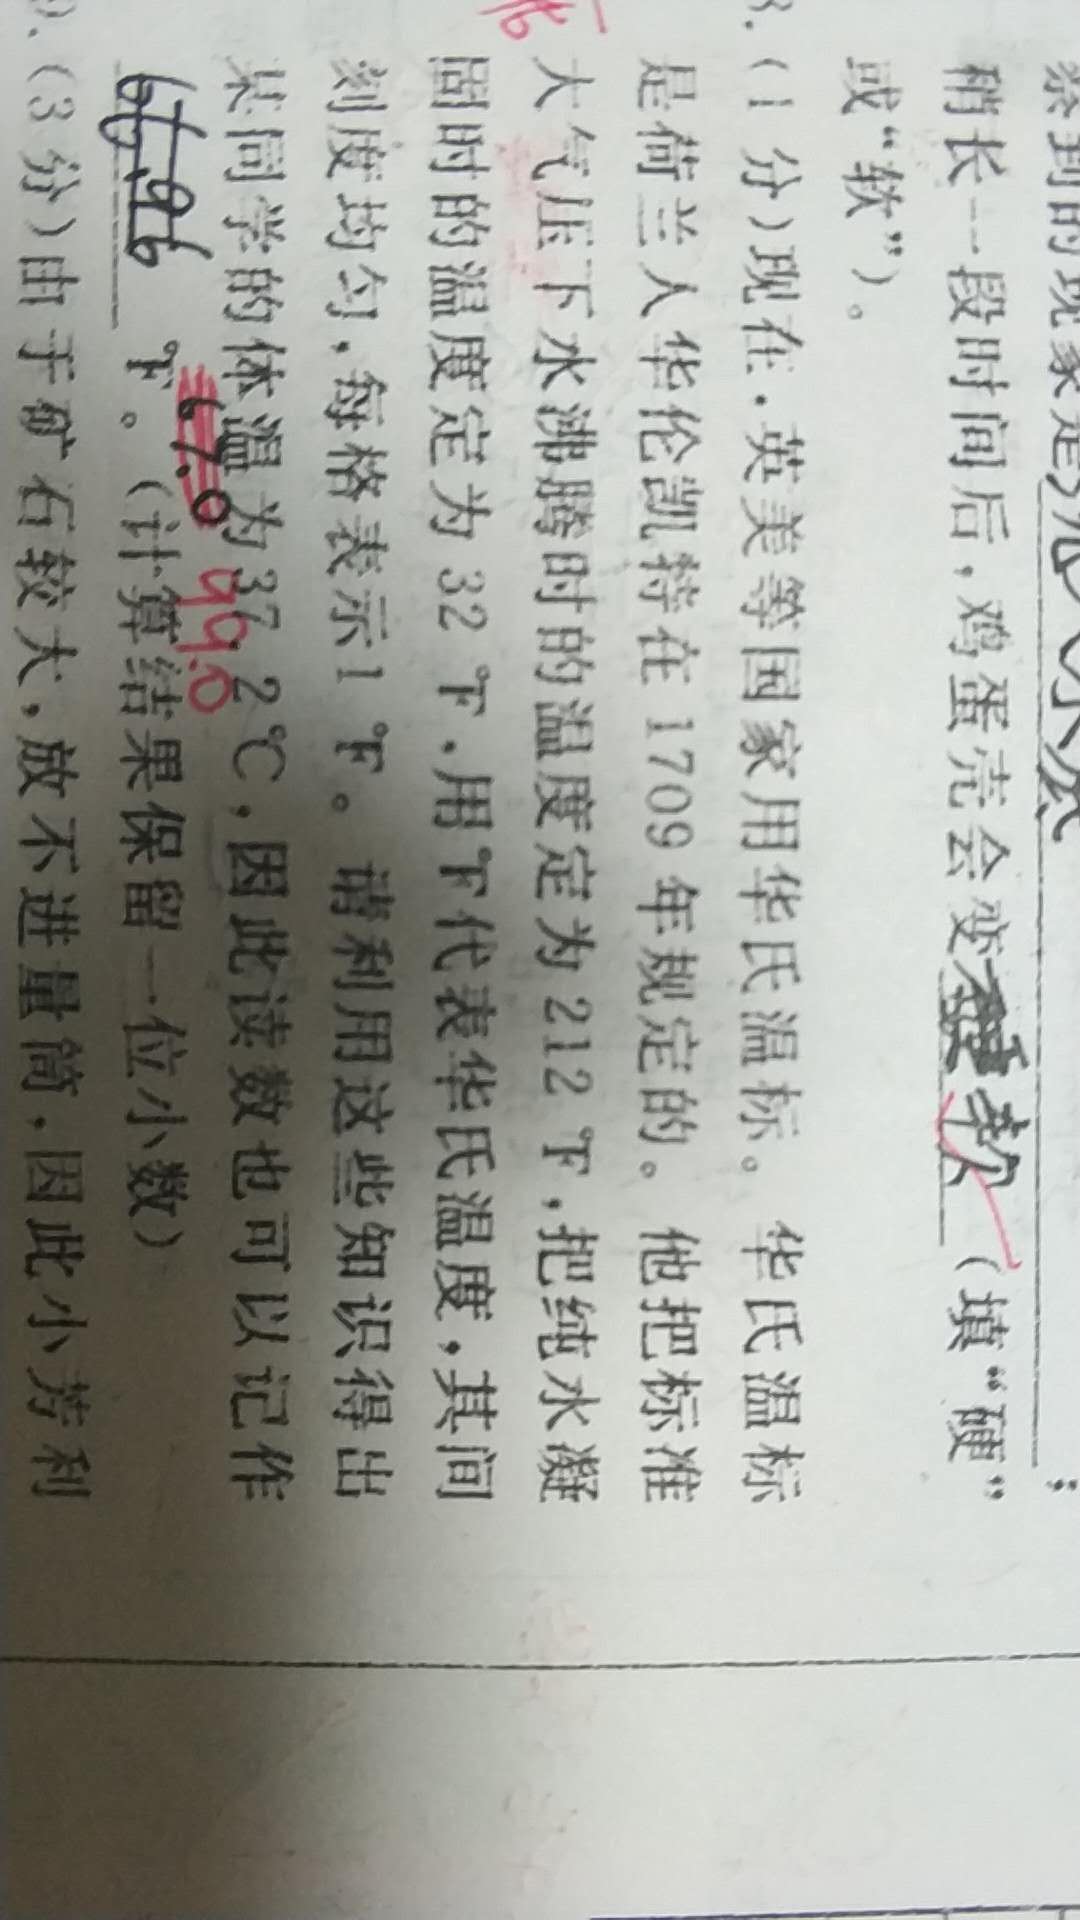 察到的现象是
稍长一段时间后，鸡蛋壳会变 软 （填“硬”
或“软”）。
（1 分）现在，英美等国家用华氏温标。华氏温标
是荷兰人华伦凯特在 1709 年规定的。他把标准
大气压下水沸腾时的温度定为 212 ℉，把纯水凝
固时的温度定为 32 ℉，用℉代表华氏温度，其间
刻度均匀，每格表示 1 ℉。请利用这些知识得出
某同学的体温为 37.2℃，因此读数也可以记作
67.0 99.0
℉。（计算结果保留一位小数）
（3 分）由于矿石较大，放不进量筒，因此小芳利